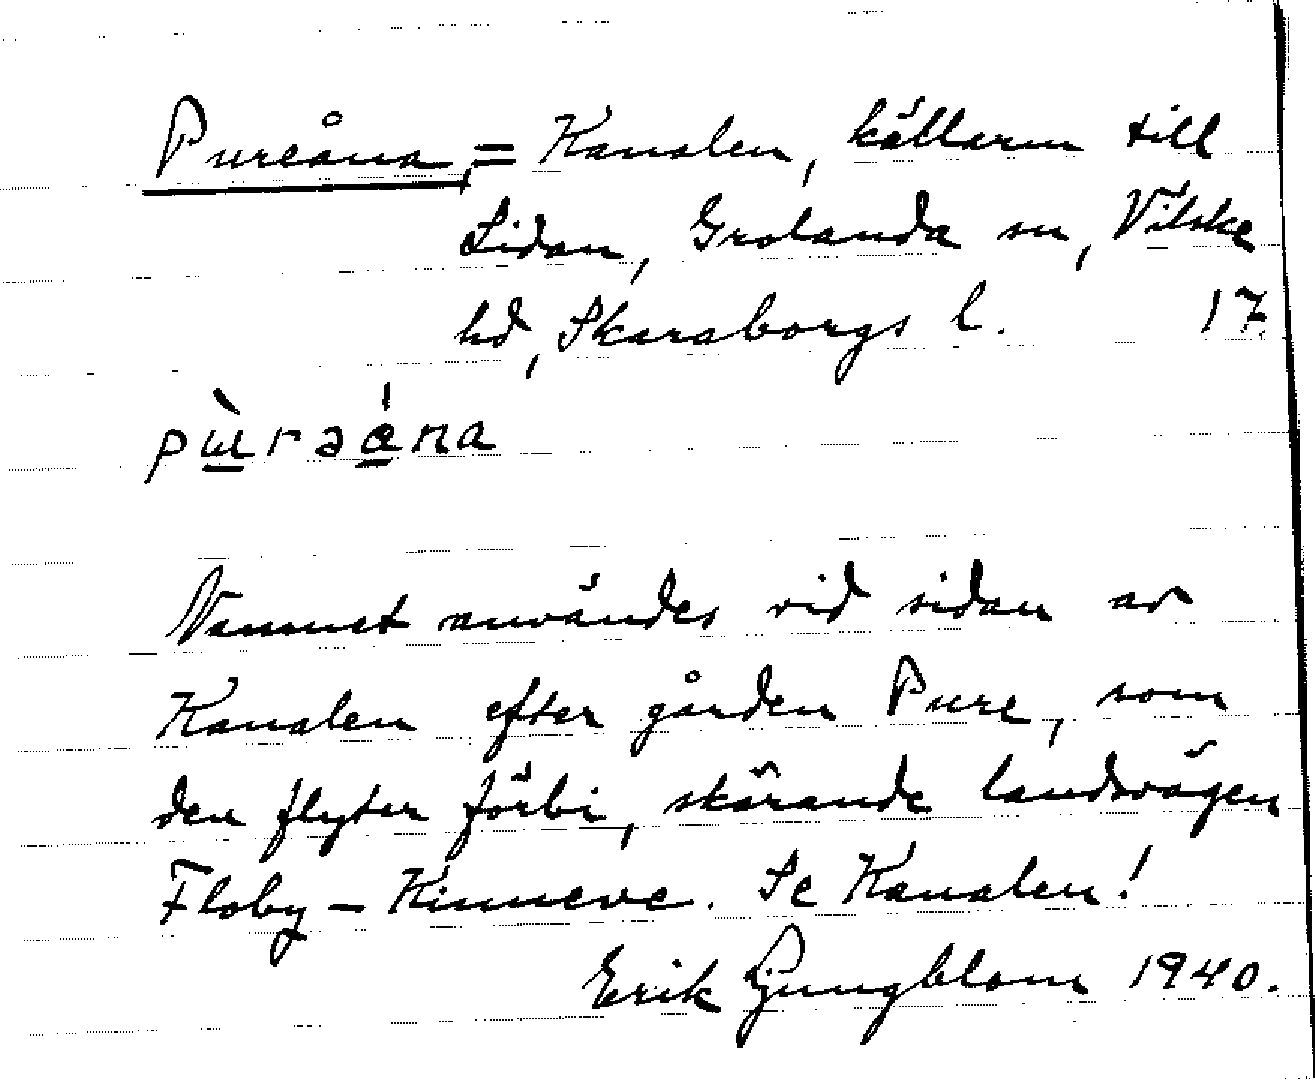 Pureåna, = Kanalen, källarm till
Lidan, Grolanda sn, Vilske
hd, Skaraborgs l. 17.
pɯ̀rəána
Namnet användes vid sidan av
Kanalen efter gården Pure, som
den flyter förbi, skärande landsvägen
Floby – Kinneve. Se Kanalen!
Erik Ljungblom 1940.